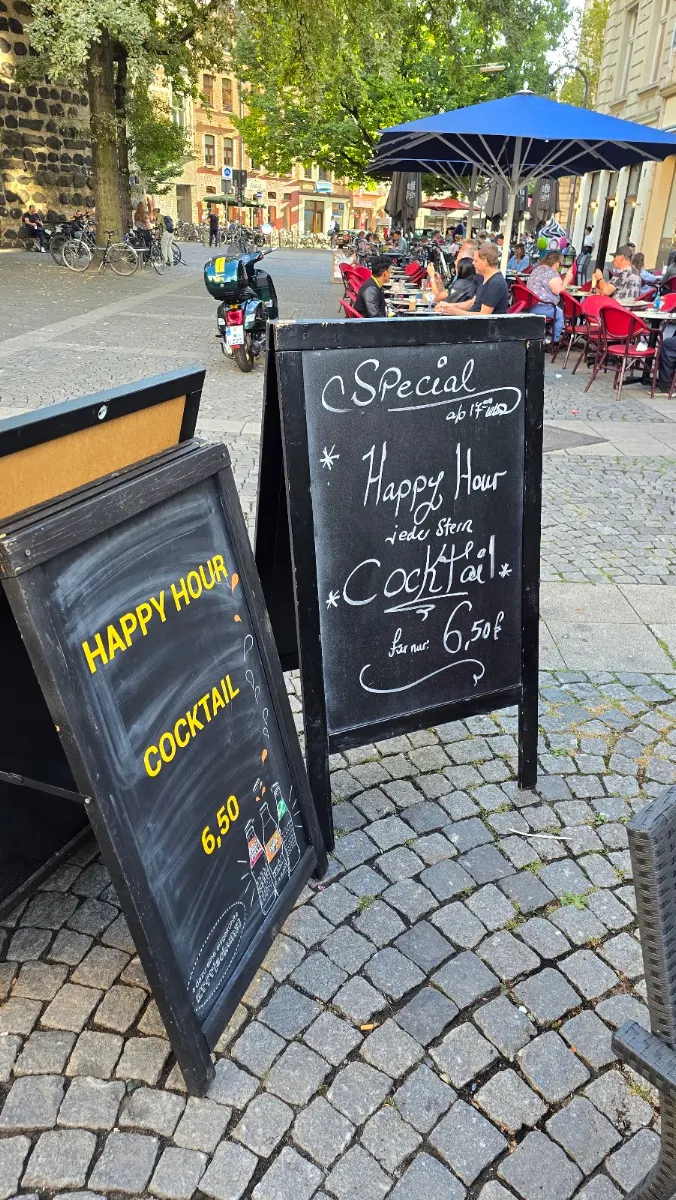 Special
ab 17
Happy Hour
jede Stern
Cocktail
für nur: 6,50€
HAPPY HOUR
COCKTAIL
6,50